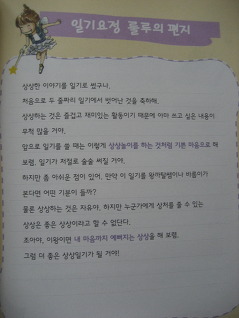 일기요정 플루의 편지
상상한 이야기를 일기로 썼구나.
처음으로 두 줄짜리 일기에서 벗어난 것을 축하해.
상상하는 것은 즐겁고 재미있는 활동이기 때문에 아마 쓰고 싶은 내용이
무척 많을 거야.
앞으로 일기를 쓸 때는 이렇게 상상놀이를 하는 것처럼 기쁜 마음으로 해
보렴. 일기가 저절로 술술 써질 거야.
하지만 좀 아쉬운 점이 있어. 만약 이 일기를 왕까탈쌤이나 바름이가
본다면 어떤 기분이 들까?
물론 상상하는 것은 자유야. 하지만 누군가에게 상처를 줄 수 있는
상상은 좋은 상상이라고 할 수 없단다.
조아야, 이왕이면 내 마음까지 예뻐지는 상상을 해 보렴.
그럼 더 좋은 상상일기가 될 거야!